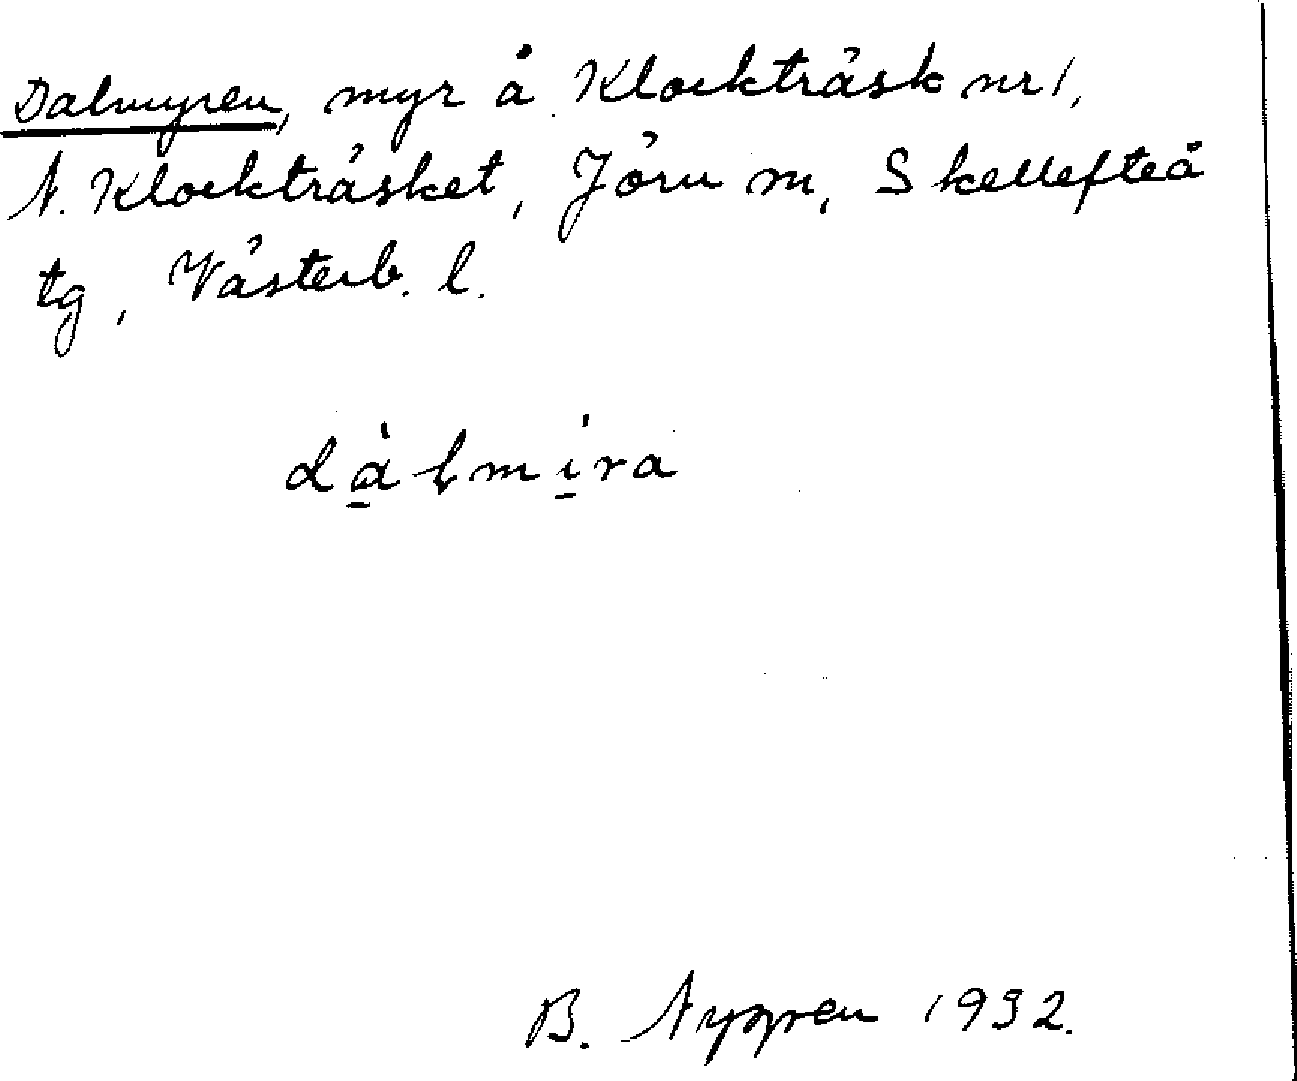 Dalmyren, myr å Klockträsk nr 1,
N. Klockträsket, Jörn m, Skellefteå
tg, Västerb. l.
dàlmíra
B. Nygren 1932.